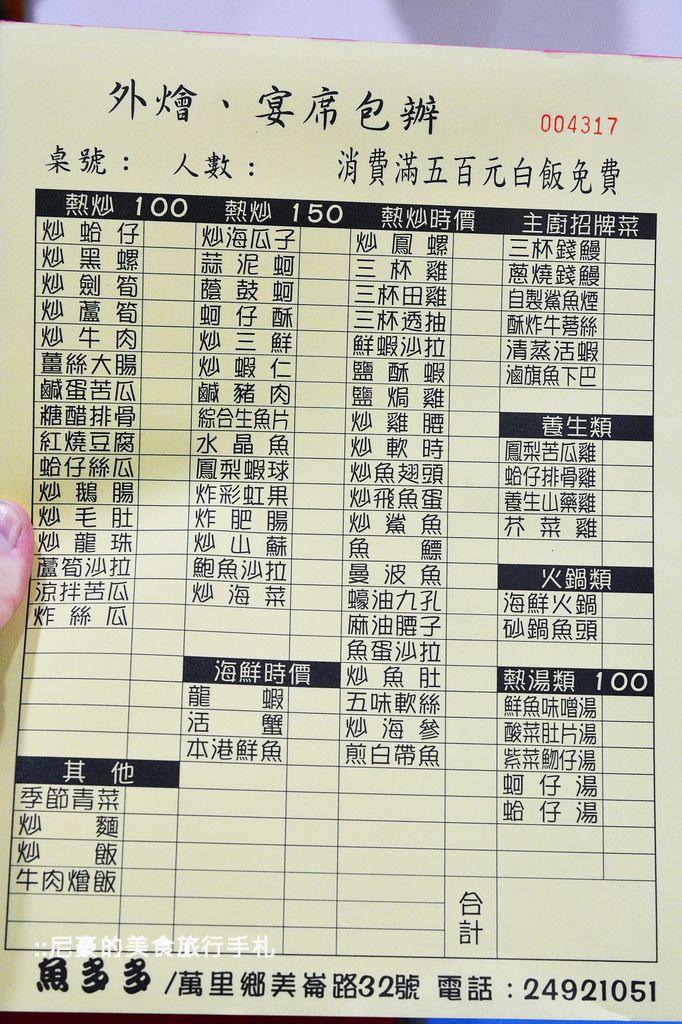 外燴、宴席包辦
004317
桌號：人數：消費滿五百元白飯免費
熱炒 100
炒蛤仔
炒黑螺
炒劍筍
炒蘆筍
炒牛肉
薑絲大腸
鹹蛋苦瓜
糖醋排骨
紅燒豆腐
蛤仔絲瓜
炒鵝腸
炒毛肚
炒龍珠
蘆筍沙拉
涼拌苦瓜
炸絲瓜
其他
季節青菜
炒麵
炒飯
牛肉燴飯
熱炒 150
炒海瓜子
蒜泥蚵
蔭鼓蚵
蚵仔酥
炒三鮮
炒蝦仁
鹹豬肉
綜合生魚片
水晶魚
鳳梨蝦球
炸彩虹果
炸肥腸
炒山蘇
鮑魚沙拉
炒海菜
海鮮時價
龍蝦
活蟹
本港鮮魚
熱炒時價
炒鳳螺
三杯雞
三杯田雞
三杯透抽
鮮蝦沙拉
鹽酥蝦
鹽焗雞
炒雞腰
炒軟時
炒魚翅頭
炒飛魚蛋
炒鯊魚
魚鰾
曼波魚
蠔油九孔
麻油腰子
魚蛋沙拉
炒魚肚
五味軟絲
炒海參
煎白帶魚
主廚招牌菜
三杯錢鰻
蔥燒錢鰻
自製鯊魚煙
酥炸牛蒡絲
清蒸活蝦
滷旗魚下巴
養生類
鳳梨苦瓜雞
蛤仔排骨雞
養生山藥雞
芥菜雞
火鍋類
海鮮火鍋
砂鍋魚頭
熱湯類 100
鮮魚味噌湯
酸菜肚片湯
紫菜魩仔湯
蚵仔湯
蛤仔湯
合計
::尼豪的美食旅行手札
魚多多/萬里鄉美崙路32號 電話：24921051